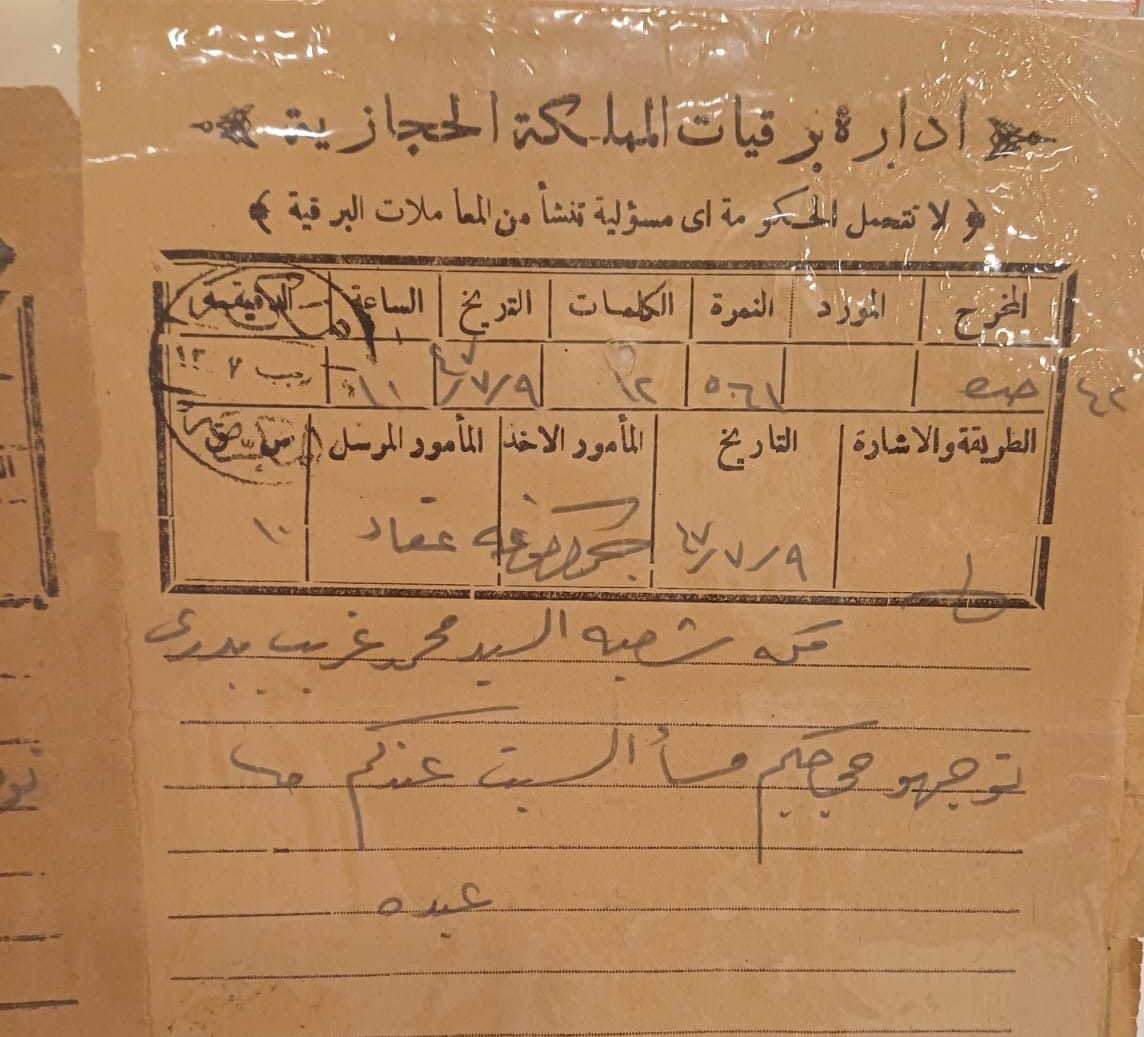 ادارة برقيات المملكة الحجازية
﴿ لا تتحمل الحكومة اى مسؤلية تنشأ من المعاملات البرقية ﴾
المخرج المورد النمرة الكلمات التريخ الساعة الدقيقة
٤٢ جده ٥٠٦١ ١٢ ٩/٧/٤٧ ١١
الطريقة والاشارة التاريخ المأمور الاخذ المأمور المرسل
٩/٧/٤٧ عقاد ١٠
مكه السيد محمد غريب بدوى
توجهو حجاجكم مسأ السبت عندكم
عبده